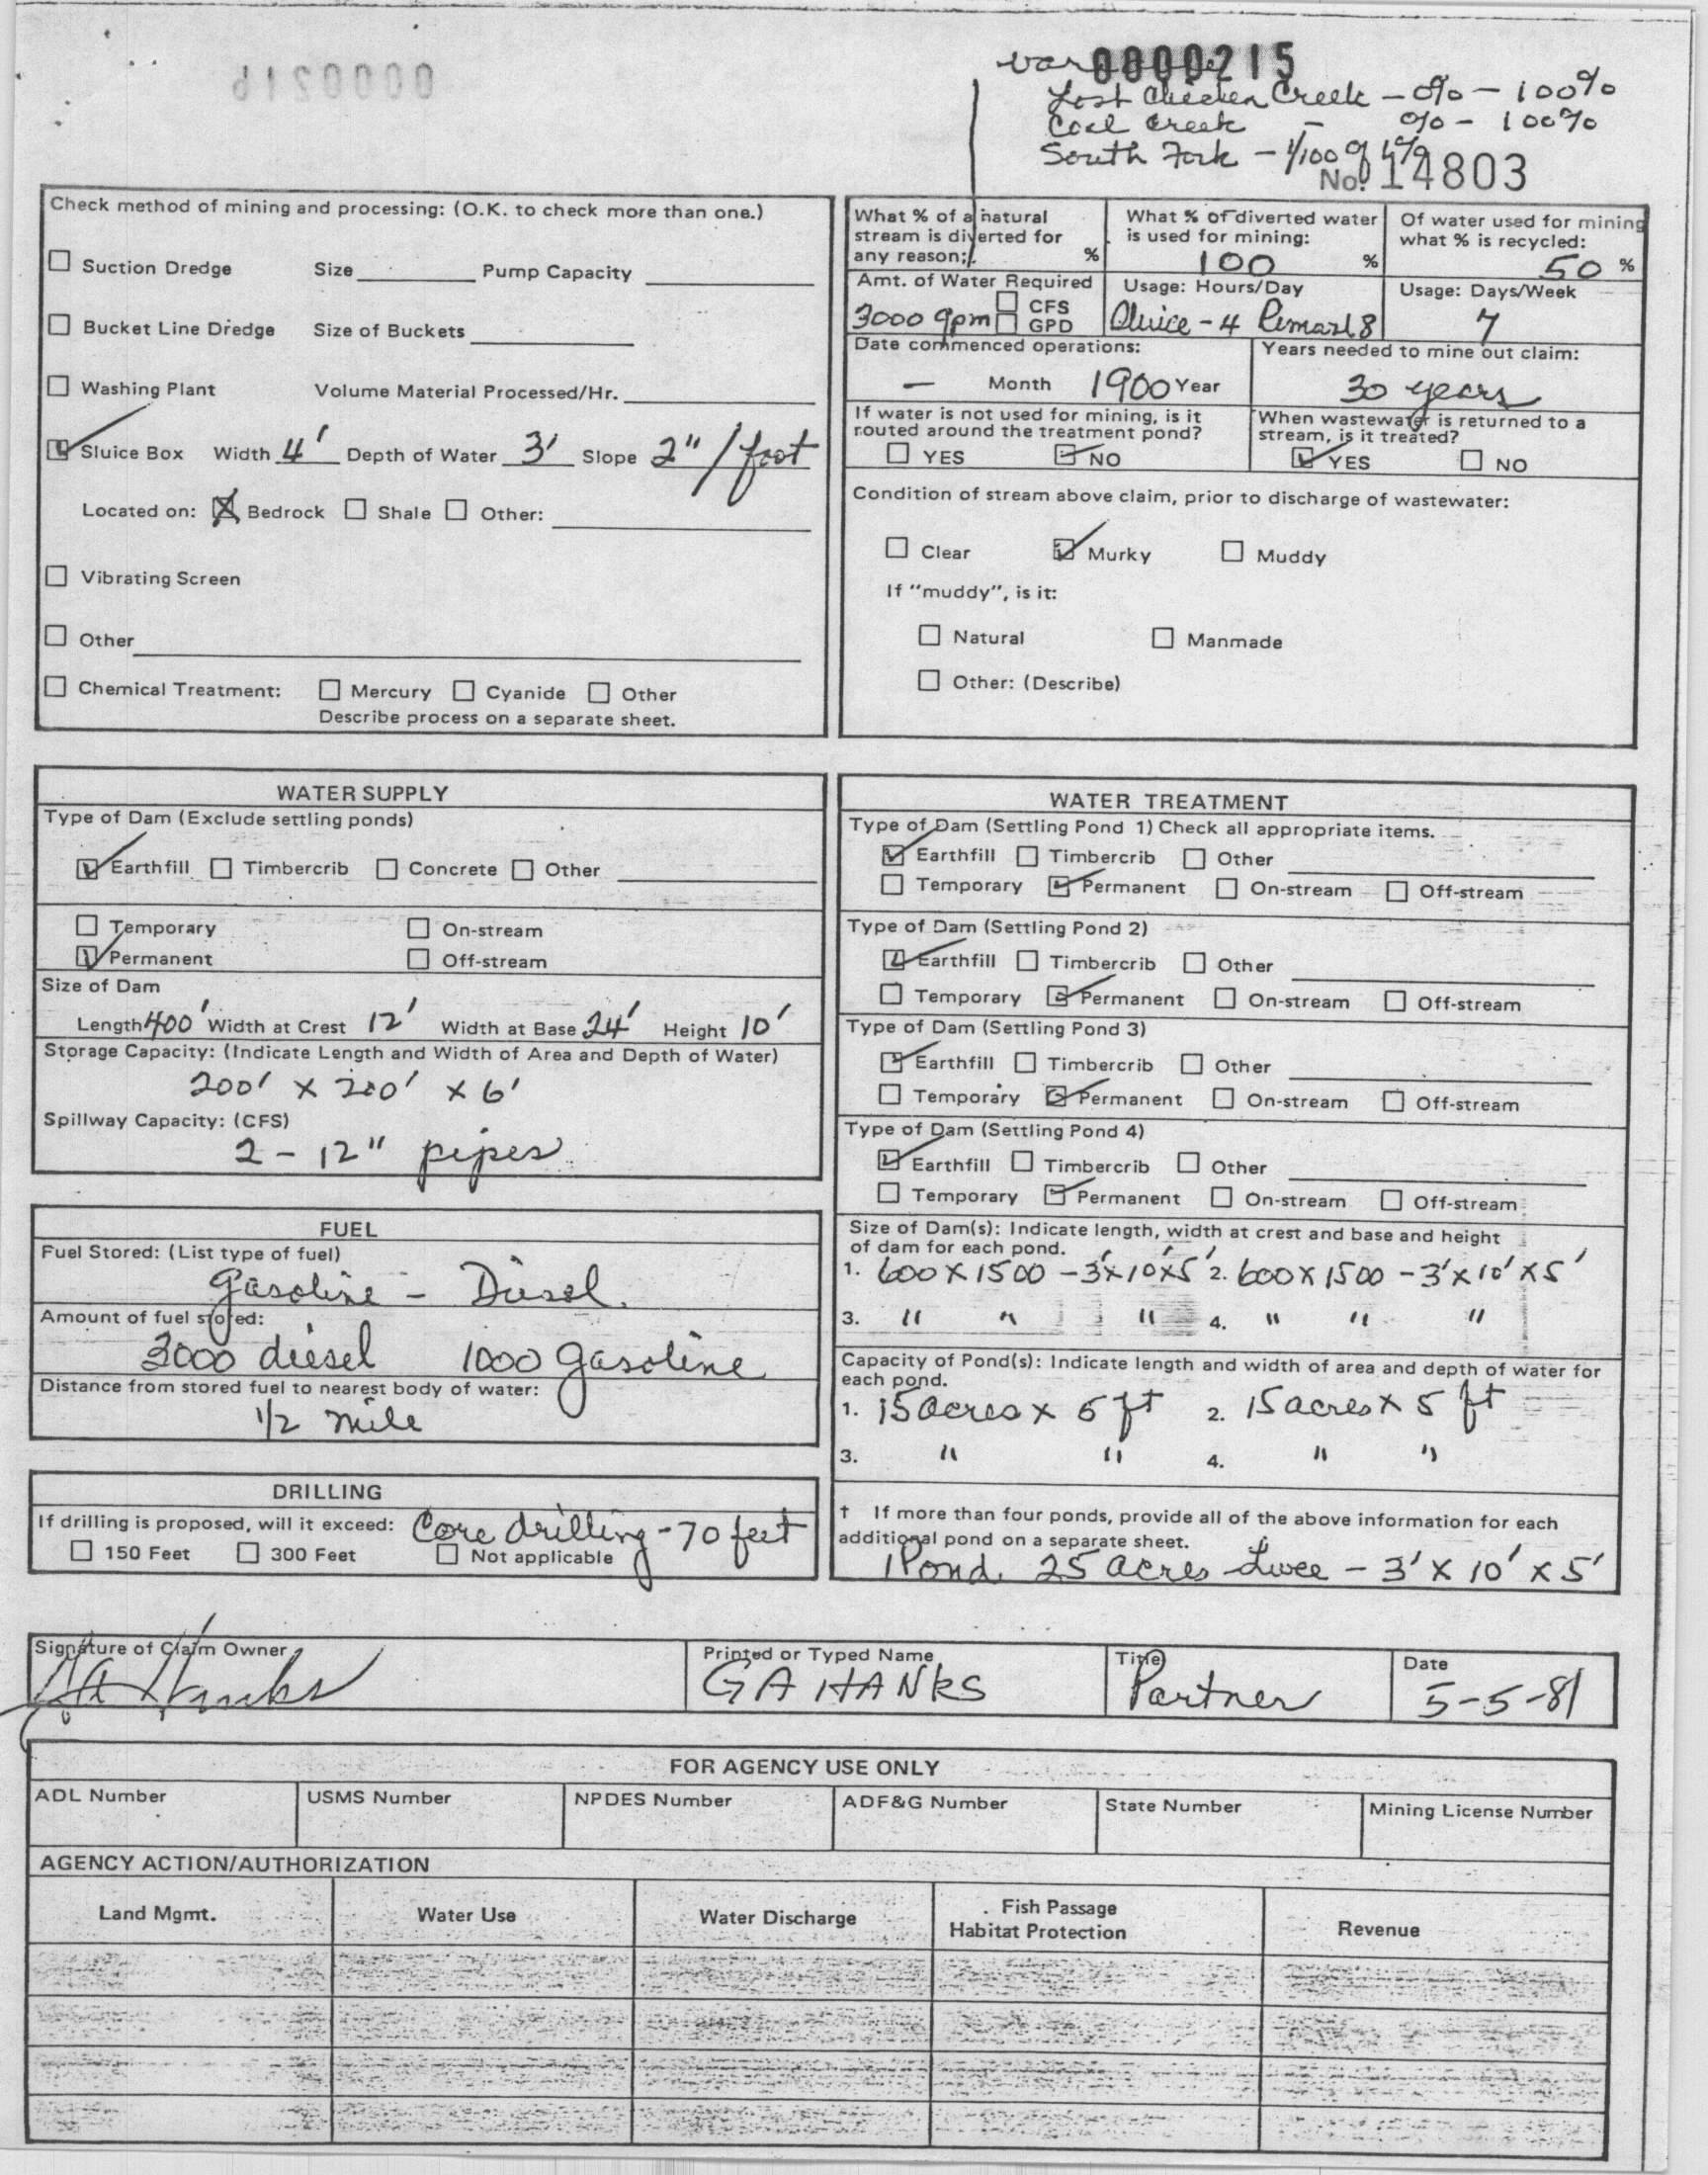 0000215
Lost Chicken Creek - 0% - 100%
Coal Creek - 0% - 100%
South Fork - 1/100 of 1%
No. 14803
Check method of mining and processing: (O.K. to check more than one.)
Suction Dredge Size Pump Capacity
Bucket Line Dredge Size of Buckets
Washing Plant Volume Material Processed/Hr.
Sluice Box Width 4' Depth of Water 3' Slope 2"/foot
Located on: Bedrock Shale Other:
Vibrating Screen
Other
Chemical Treatment: Mercury Cyanide Other
Describe process on a separate sheet.
What % of a natural
stream is diverted for
any reason: %
What % of diverted water
is used for mining:
100 %
Of water used for mining
what % is recycled:
50 %
Amt. of Water Required
3000 gpm CFS
GPD
Usage: Hours/Day
Sluice - 4 8
Usage: Days/Week
7
Date commenced operations:
— Month 1900 Year
Years needed to mine out claim:
30 years
If water is not used for mining, is it
routed around the treatment pond?
YES NO
When wastewater is returned to a
stream, is it treated?
YES NO
Condition of stream above claim, prior to discharge of wastewater:
Clear Murky Muddy
If "muddy", is it:
Natural Manmade
Other: (Describe)
WATER SUPPLY
Type of Dam (Exclude settling ponds)
Earthfill Timbercrib Concrete Other
Temporary On-stream
Permanent Off-stream
Size of Dam
Length 400' Width at Crest 12' Width at Base 24' Height 10'
Storage Capacity: (Indicate Length and Width of Area and Depth of Water)
200' x 200' x 6'
Spillway Capacity: (CFS)
2 - 12" pipes
FUEL
Fuel Stored: (List type of fuel)
Gasoline - Diesel
Amount of fuel stored:
3000 diesel 1000 gasoline
Distance from stored fuel to nearest body of water:
1/2 mile
DRILLING
If drilling is proposed, will it exceed: Core drilling - 70 feet
150 Feet 300 Feet Not applicable
WATER TREATMENT
Type of Dam (Settling Pond 1) Check all appropriate items.
Earthfill Timbercrib Other
Temporary Permanent On-stream Off-stream
Type of Dam (Settling Pond 2)
Earthfill Timbercrib Other
Temporary Permanent On-stream Off-stream
Type of Dam (Settling Pond 3)
Earthfill Timbercrib Other
Temporary Permanent On-stream Off-stream
Type of Dam (Settling Pond 4)
Earthfill Timbercrib Other
Temporary Permanent On-stream Off-stream
Size of Dam(s): Indicate length, width at crest and base and height
of dam for each pond.
1. 600 x 1500 - 3' x 10' x 5' 2. 600 x 1500 - 3' x 10' x 5'
3. " " " 4. " " "
Capacity of Pond(s): Indicate length and width of area and depth of water for
each pond.
1. 15 acres x 5 ft 2. 15 acres x 5 ft
3. " " 4. " "
† If more than four ponds, provide all of the above information for each
additional pond on a separate sheet.
1 Pond. 25 acres - 3' x 10' x 5'
Signature of Claim Owner
GA Hanks
Printed or Typed Name
GA HANKS
Title
Partner
Date
5-5-81
FOR AGENCY USE ONLY
ADL Number USMS Number NPDES Number ADF&G Number State Number Mining License Number
AGENCY ACTION/AUTHORIZATION
Land Mgmt. Water Use Water Discharge Fish Passage
Habitat Protection Revenue